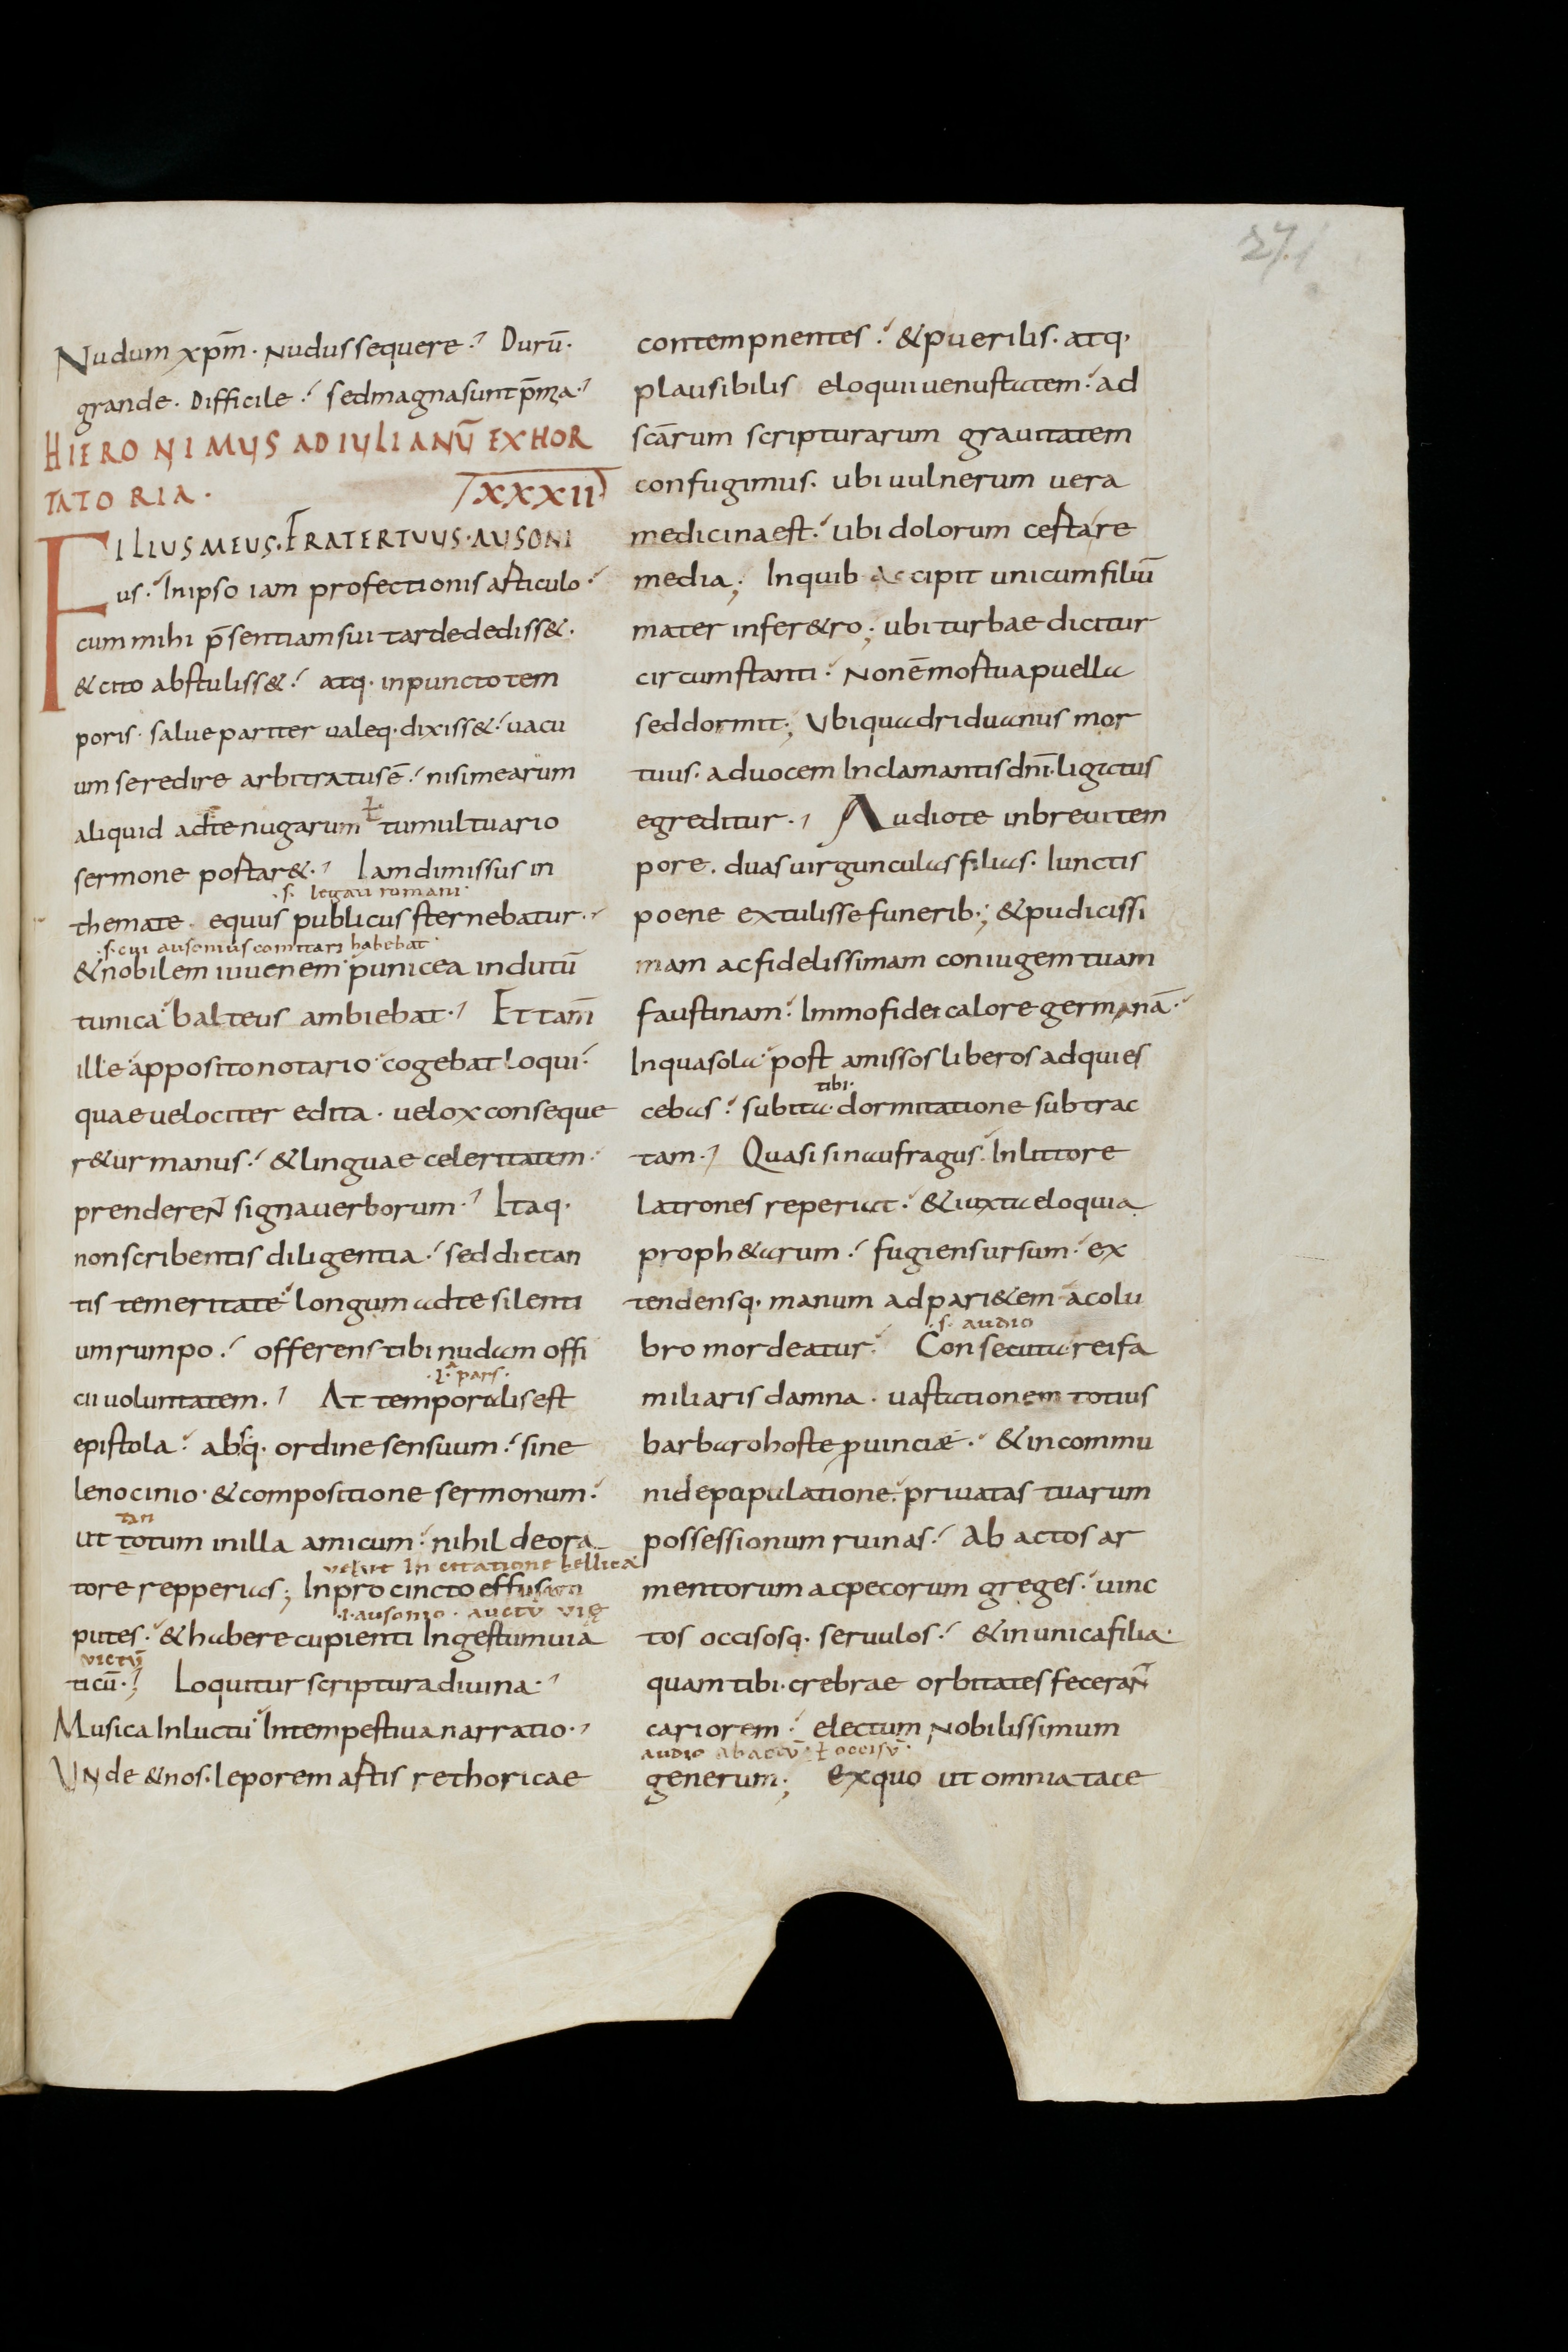 27
Nudum xp̄m. Nudus sequere. Durū.
grande. Difficile. sed magna sunt p̄mia.
HIERONIMUS AD IULIANŪ EXHOR
TATORIA. XXXII
FILIUS MEUS. FRATER TUUS. AUSONI
us. In ipso iam profectionis articulo.
cum mihi p̄sentiam sui tarde dediss&.
& cito abstuliss&. atq. in puncto tem
poris. salue pariter ualeq. dixiss&. uacu
um se redire arbitratus ē. nisi mearum
aliquid ad te nugarum ł tumultuario
sermone portar&. Iam dimissus in
.s. legati romani
themate. equus publicus sternebatur.
.s. cui ausonius comitari habebat
& nobilem iuuenem punicea indutū
tunica balteus ambiebat. Et tam̄
ille apposito notario cogebat loqui.
quae uelociter edita. uelox conseque
r&ur manus. & linguae celeritatem
prenderent signa uerborum. Itaq.
non scribentis diligentia. sed dictan
tis temeritate longum ad te silenti
um rumpo. offerens tibi nudam offi
cii uoluntatem. At temporalis est
epistola. absq. ordine sensuum. sine
lenocinio. & compositione sermonum.
tan
ut totum in illa amicum. nihil de ora
tore repperias; In procincto effusam
.i. ausonio. auctū vię
putes. & habere cupienti Ingestum uia
victū
ticū. Loquitur scriptura diuina.
Musica In luctu Intempestiua narratio.
Unde & nos. leporem artis rethoricae
contempnentes. & puerilis. atq.
plausibilis eloquii uenustatem. ad
scārum scripturarum grauitatem
confugimus. ubi uulnerum uera
medicina est. Ubi dolorum certa re
media; In quib. accipit unicum filiū
mater in fer&ro; ubi turbae dicitur
circumstanti. Non ē mortua puella
sed dormit; Ubi quadriduanus mor
tuus. ad uocem Inclamantis dn̄i. ligatus
egreditur. Audio te in breui tem
pore. duas uirgunculas filias. Iunctis
poene extulisse funerib.; & pudicissi
mam ac fidelissimam coniugem tuam
faustinam. Immo fidei calore germanā.
In qua sola post amissos liberos adquies
tibi.
cebas. subita dormitatione subtrac
tam. Quasi si naufragus. In littore
latrones reperiat. & iuxta eloquia
proph&arum. fugiens ursum. ex
tendensq. manum ad pari&em a colu
.s. audio
bro mordeatur. Consecuta rei fa
miliaris damna. uastationem totius
barbaro hoste prouinciae. & in commu
ni depopulatione. priuatas tuarum
possessionum ruinas. Abactos ar
mentorum ac pecorum greges. uinc
tos occisosq. seruulos. & in unica filia.
quam tibi. crebrae orbitates fecerant
cariorem. electum Nobilissimum
audio abactū ł occisū.
generum; Ex quo ut omnia tace